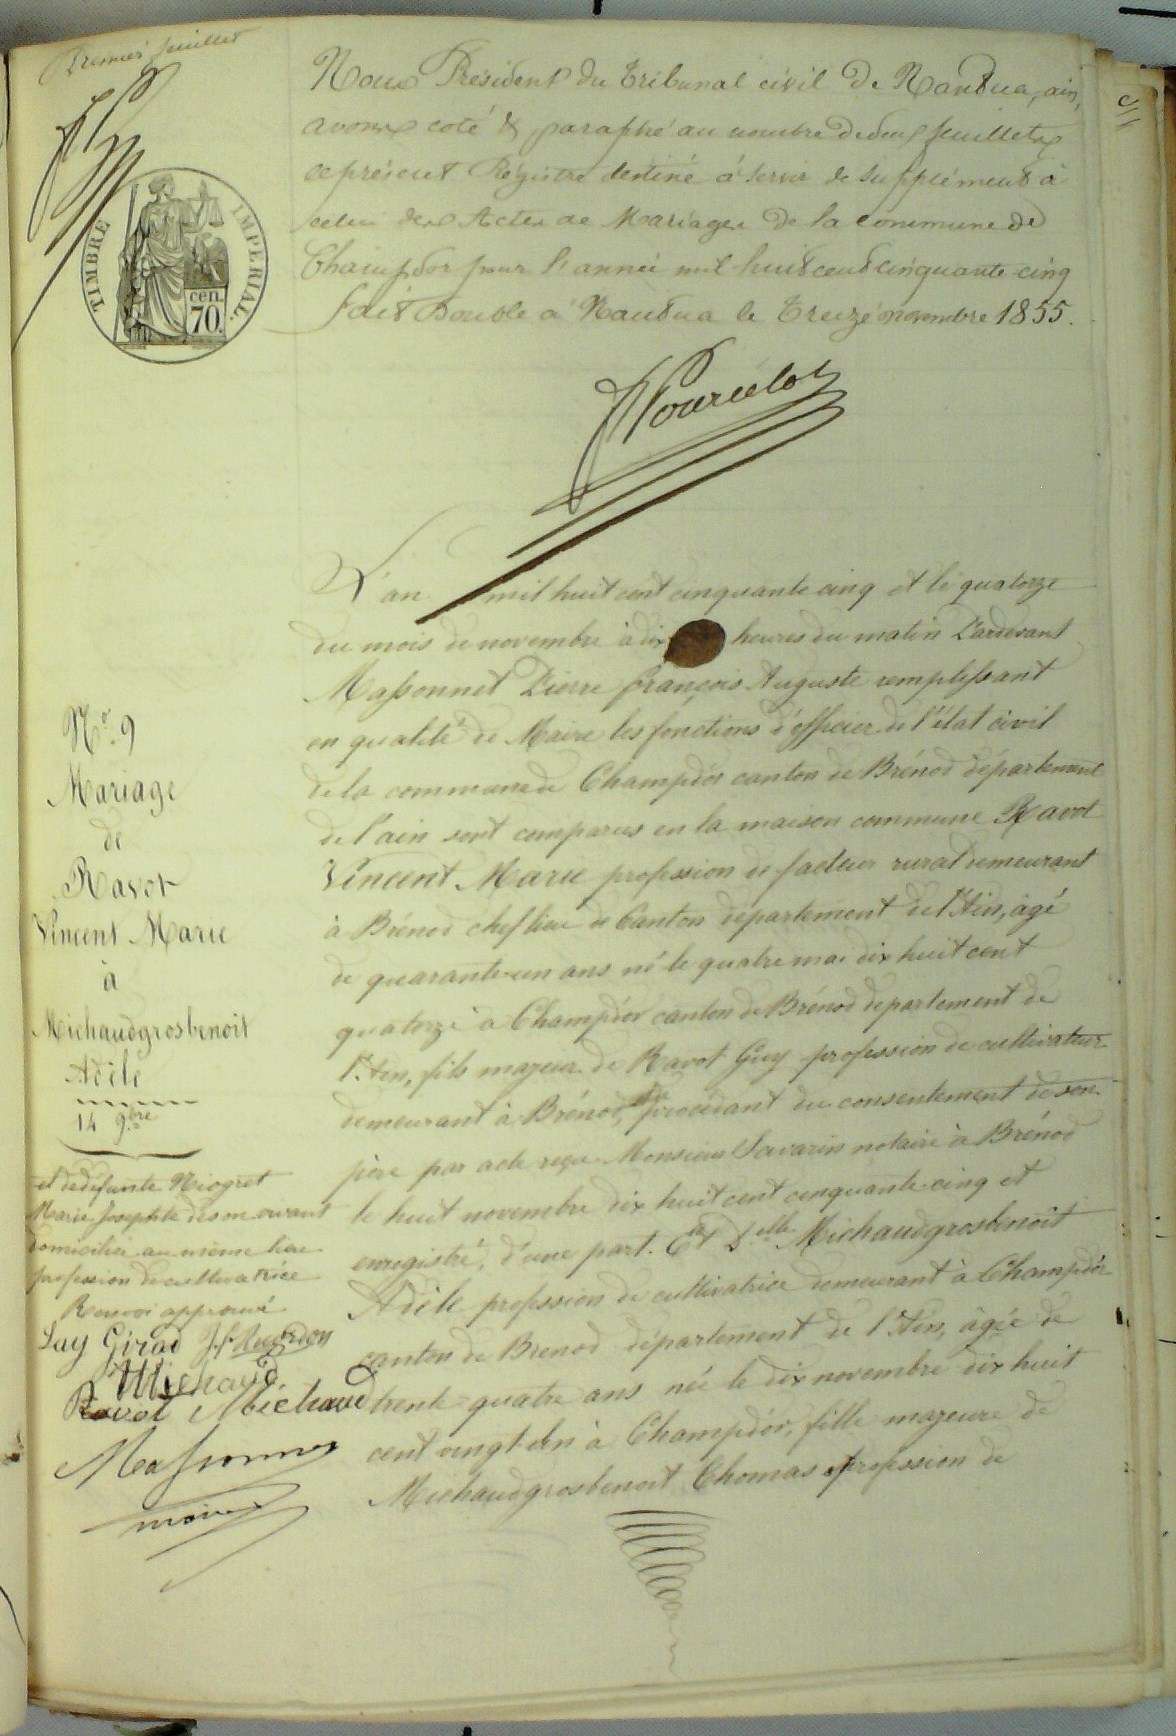 Premier feuillet
TIMBRE IMPERIAL.
cen.
70.
Nous Président du Tribunal civil de Nantua, ain,
avons coté & paraphé au nombre de deux feuillets
ce présent Régistre destiné à servir de supplément à
celui des Actes de Mariages de la Commune de
Champdor pour l'année mil huit cent cinquante cinq
fait Double à Nantua le Treize novembre 1855.
L'an mil huit cent cinquante cinq et le quatorze
du mois de novembre à dix heures du matin Pardevant
Massonnet Pierre françois Auguste remplissant
en qualité de Maire les fonctions d'officier de l'état civil
de la commune de Champdor canton de Brénod département
de l'ain sont comparus en la maison commune Ravot
Vincent Marie profession de facteur rural demeurant
à Brénod chef lieu de Canton département de l'Ain, âgé
de quarante-un ans né le quatre mai dix huit cent
quatorze à Champdor canton de Brénod département de
l'Ain, fils majeur de Ravot Guy profession de cultivateur
demeurant à Brénod, procédant du consentement de son
père par acte reçu Monsieur Savarin notaire à Brénod
le huit novembre dix huit cent cinquante-cinq et
enregistré, d'une part. Et Delle Michaudgrosbenoit
Adèle profession de cultivatrice demeurant à Champdor
canton de Brenod département de l'Ain, âgée de
trente-quatre ans née le dix novembre dix huit
cent vingt un à Champdor, fille majeure de
Michaudgrosbenoit Thomas profession de
No. 9
Mariage
de
Ravot
Vincent Marie
à
Michaudgrosbenoit
Adèle
14 9bre
et de défunte Niogret
Marie Josephte de son vivant
domiciliée au même lieu
profession de cultivatrice
Renvoi approuvé
Guy Girod
Michaud
Ravot Michaud
Massonnet
maire